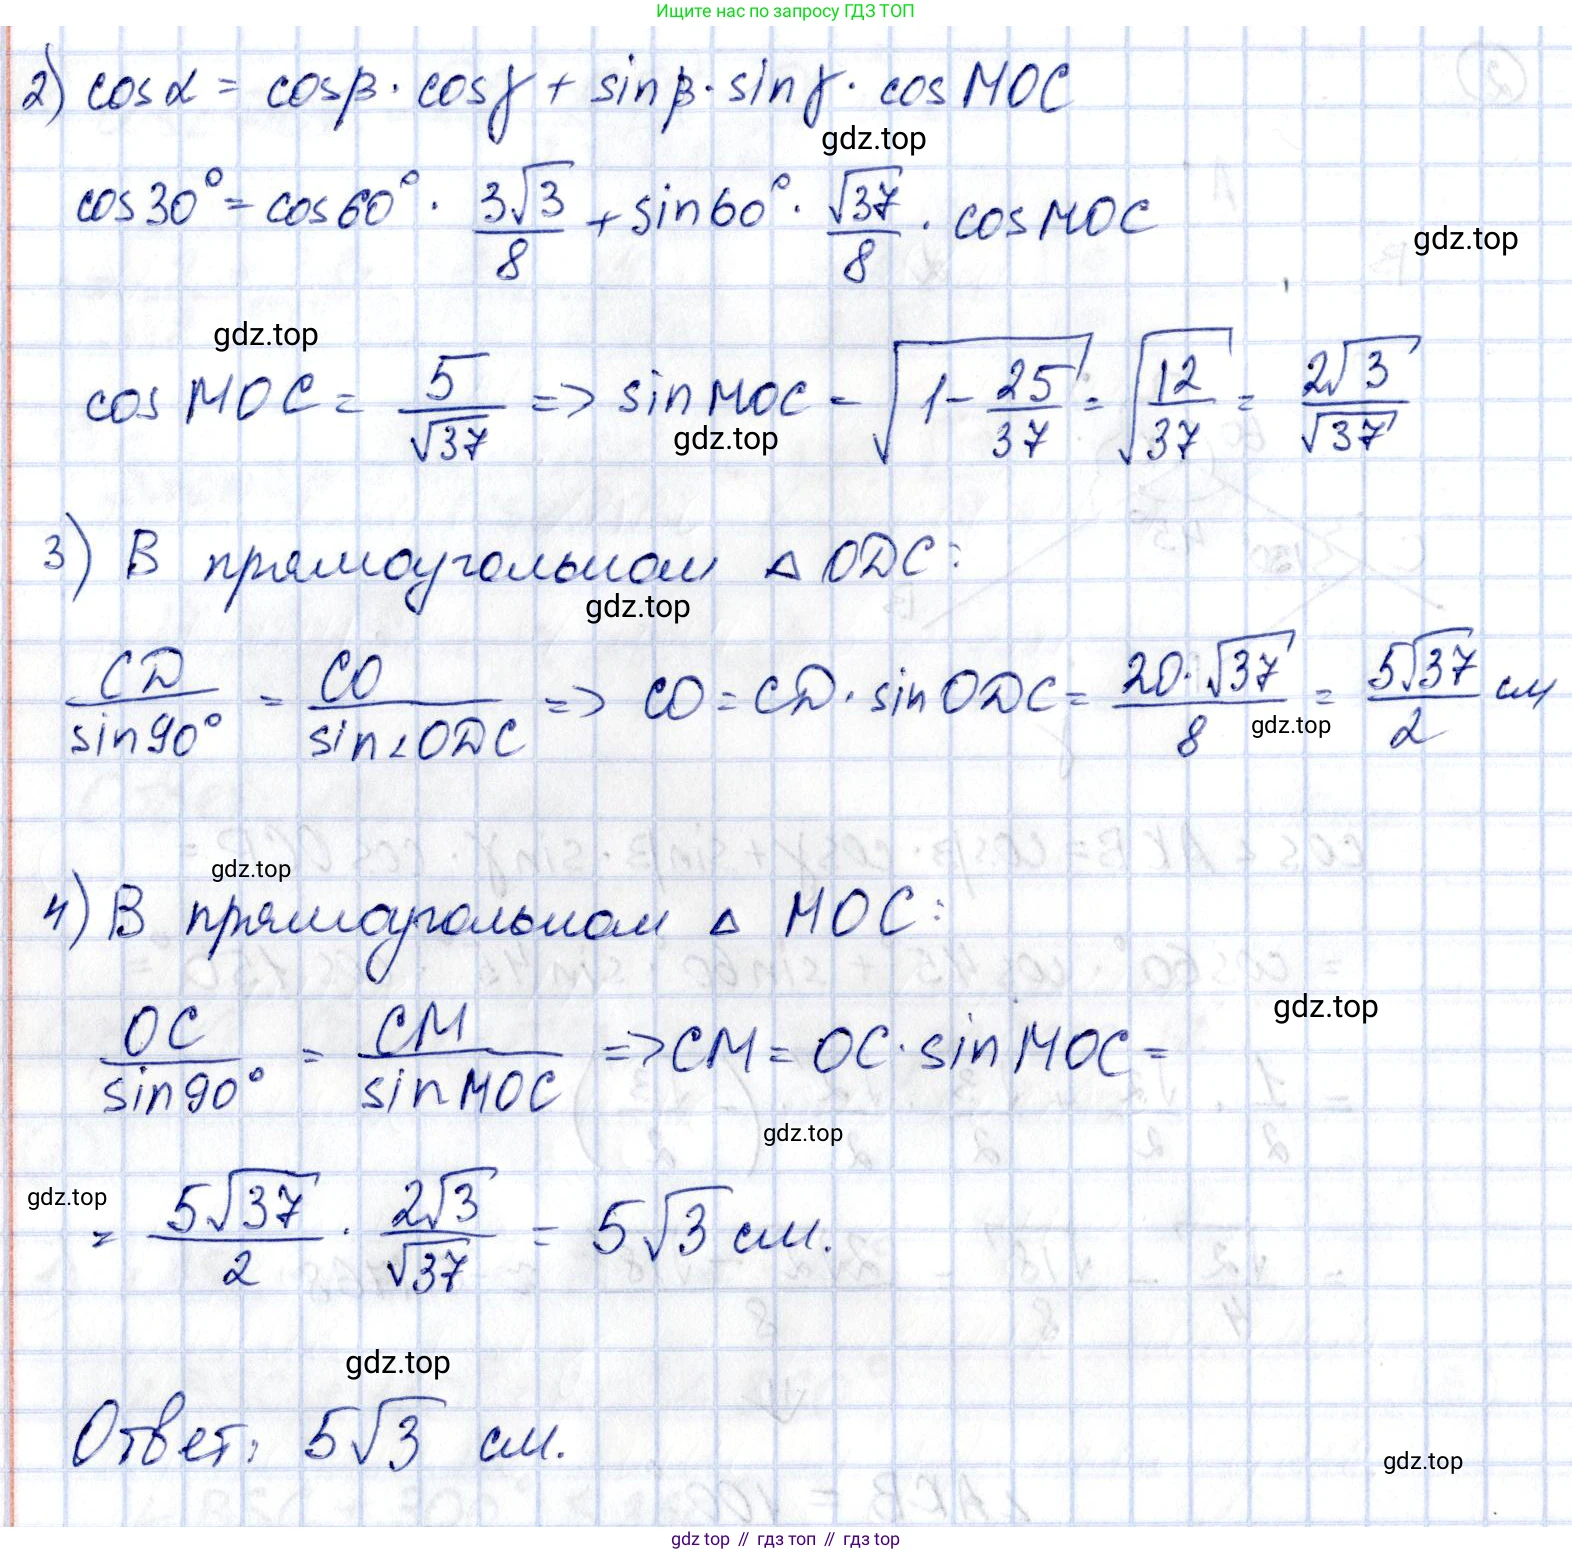 Ищите нас по запросу ГДЗ ТОП
2) cosα = cosβ · cosγ + sinβ · sinγ · cos MOC
gdz.top
cos30° = cos60° · 3√3/8 + sin60° · √37/8 · cos MOC
gdz.top
gdz.top
cos MOC = 5/√37 => sin MOC = √(1 - 25/37) = √(12/37) = 2√3/√37
gdz.top
3) В прямоугольном △ ODC:
gdz.top
CD/sin90° = CO/sin∠ODC => CO = CD · sin ODC = 20·√37/8 = 5√37/2 см
gdz.top
gdz.top
4) В прямоугольном △ MOC:
gdz.top
OC/sin90° = CM/sin MOC => CM = OC · sin MOC =
gdz.top
gdz.top
= 5√37/2 · 2√3/√37 = 5√3 см.
gdz.top
Ответ: 5√3 см.
gdz.top
gdz.top // гдз топ // гдз top